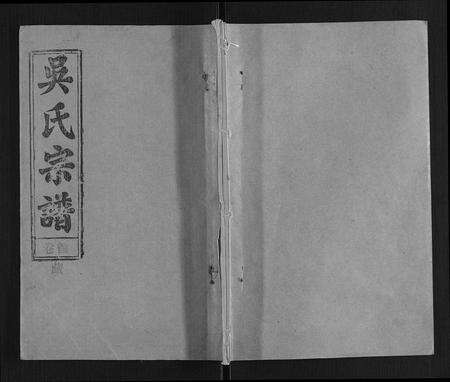 吳氏宗譜
卷首